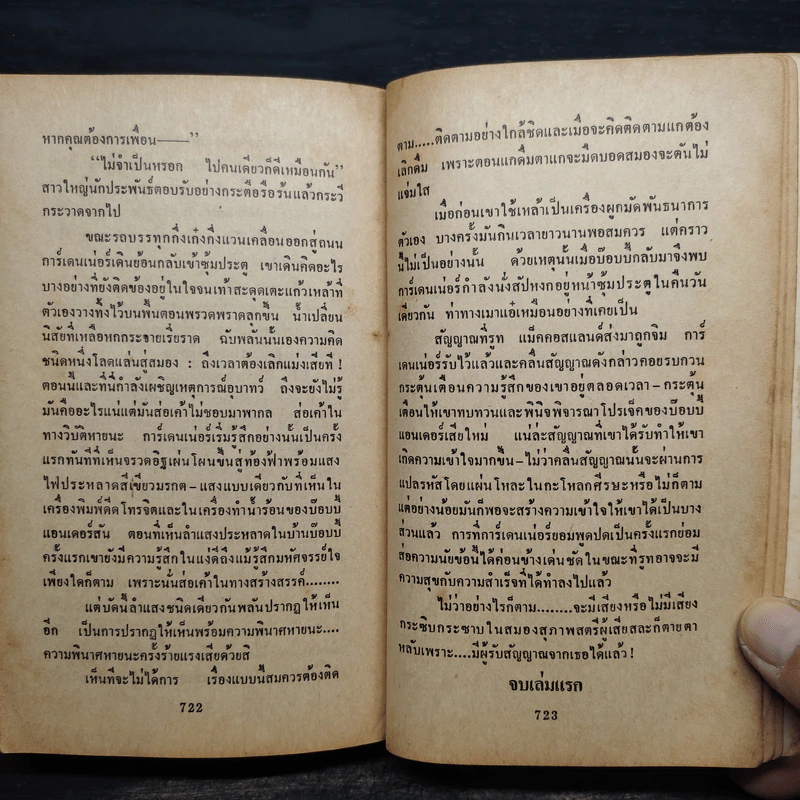 หากคุณต้องการเพื่อน——"
"ไม่จำเป็นหรอก ไปคนเดียวก็ดีเหมือนกัน"
สาวใหญ่นักประพันธ์ตอบรับอย่างกระตือรือร้นแล้วกระวี
กระวาดจากไป
ขณะรถบรรทุกกึ่งเก๋งกึ่งแวนเคลื่อนออกสู่ถนน
การ์เดนเน่อร์เดินย้อนกลับเข้าซุ้มประตู เขาเดินคิดอะไร
บางอย่างที่ยังติดข้องอยู่ในใจจนเท้าสะดุดเตะแก้วเหล้าที่
ตัวเองวางทิ้งไว้บนพื้นตอนพรวดพราดลุกขึ้น น้ำเปลี่ยน
นิสัยที่เหลือหกกระจายเรี่ยราด ฉับพลันนั้นเองความคิด
ชนิดหนึ่งโลดแล่นสู่สมอง : ถึงเวลาต้องเลิกแม่งเสียที !
ตอนนี้และที่นี่กำลังเผชิญเหตุการณ์อุบาทว์ ถึงจะยังไม่รู้
มันคืออะไรแน่แต่มันส่อเค้าไม่ชอบมาพากล ส่อเค้าใน
ทางวิบัติหายนะ การ์เดนเน่อร์เริ่มรู้สึกอย่างนั้นเป็นครั้ง
แรกทันทีที่เห็นจรวดอิฐเผ่นโผนขึ้นสู่ท้องฟ้าพร้อมแสง
ไฟประหลาดสีเขียวมรกต–แสงแบบเดียวกับที่เห็นใน
เครื่องพิมพ์ดีดโทรจิตและในเครื่องทำน้ำร้อนของบ๊อบบี้
แอนเดอร์สัน ตอนที่เห็นลำแสงประหลาดในบ้านบ๊อบบี้
ครั้งแรกเขายังมีความรู้สึกในแง่ดีถึงแม้รู้สึกมหัศจรรย์ใจ
เพียงใดก็ตาม เพราะนั่นส่อเค้าในทางสร้างสรรค์........
แต่บัดนี้ลำแสงชนิดเดียวกันพลันปรากฏให้เห็น
อีก เป็นการปรากฏให้เห็นพร้อมความพินาศหายนะ....
ความพินาศหายนะครั้งร้ายแรงเสียด้วยสิ
เห็นที่จะไม่ได้การ เรื่องแบบนี้สมควรต้องติด
722
ตาม.....ติดตามอย่างใกล้ชิดและเมื่อจะคิดติดตามแกต้อง
เลิกดื่ม เพราะตอนแกดื่มตาแกจะมืดบอดสมองจะตันไม่
แจ่มใส
เมื่อก่อนเขาใช้เหล้าเป็นเครื่องผูกมัดพันธนาการ
ตัวเอง บางครั้งมันกินเวลายาวนานพอสมควร แต่คราว
นี้ไม่เป็นอย่างนั้น ด้วยเหตุนั้นเมื่อบ๊อบบี้กลับมาจึงพบ
การ์เดนเน่อร์กำลังนั่งสัปหงกอยู่หน้าซุ้มประตูในคืนวัน
เดียวกัน ท่าทางเมาแอ๋เหมือนอย่างที่เคยเป็น
สัญญาณที่รูท แม็คคอสแลนด์ส่งมาถูกจิม การ์
เดนเน่อร์รับไว้แล้วและคลื่นสัญญาณดังกล่าวคอยรบกวน
กระตุ้นเตือนความรู้สึกของเขาอยู่ตลอดเวลา–กระตุ้น
เตือนให้เขาทบทวนและพินิจพิจารณาโปรเจ็คของบ๊อบบี้
แอนเดอร์เสียใหม่ แน่ล่ะสัญญาณที่เขาได้รับทำให้เขา
เกิดความเข้าใจมากขึ้น–ไม่ว่าคลื่นสัญญาณนั้นจะผ่านการ
แปลรหัสโดยแผ่นโหละในกะโหลกศีรษะหรือไม่ก็ตาม
แต่อย่างน้อยมันก็พอจะสร้างความเข้าใจให้เขาได้เป็นบาง
ส่วนแล้ว การที่การ์เดนเน่อร์ยอมพูดปดเป็นครั้งแรกย่อม
ส่อความนัยข้อนี้ได้ค่อนข้างเด่นชัดในขณะที่รูทอาจจะมี
ความสุขกับความสำเร็จที่ได้ทำลงไปแล้ว
ไม่ว่าอย่างไรก็ตาม........จะมีเสียงหรือไม่มีเสียง
กระซิบกระซาบในสมองสุภาพสตรีผู้เสียสละก็ตายตา
หลับเพราะ....มีผู้รับสัญญาณจากเธอได้แล้ว !
จบเล่มแรก
723